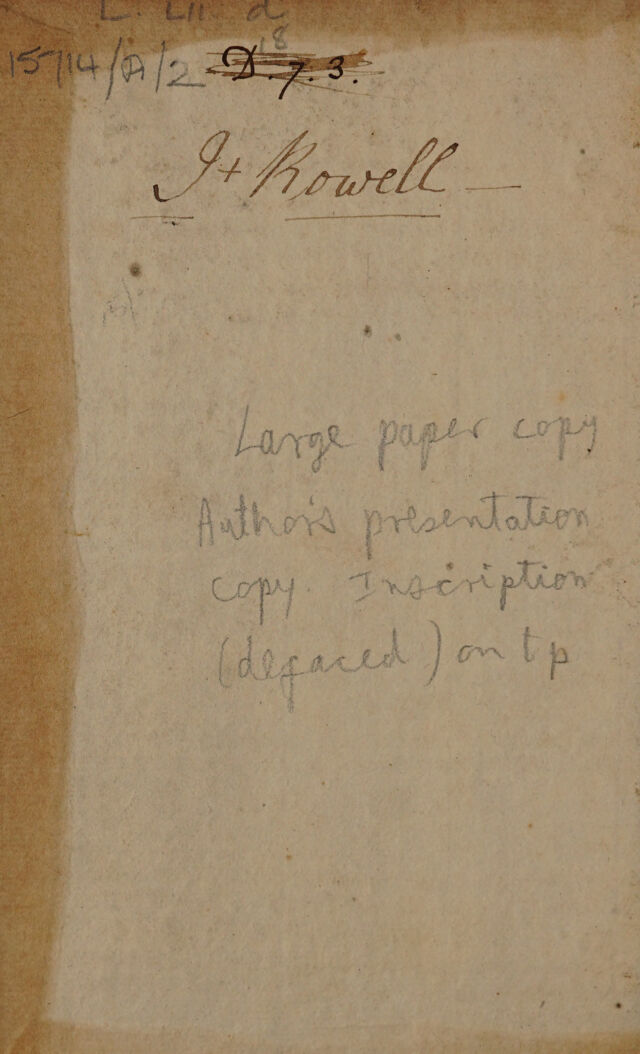 L. LII. d
18
15714/A/2 D.7.3.
Jt Rowell —
Large paper copy
Author's presentation
copy. Inscription
(defaced) on tp